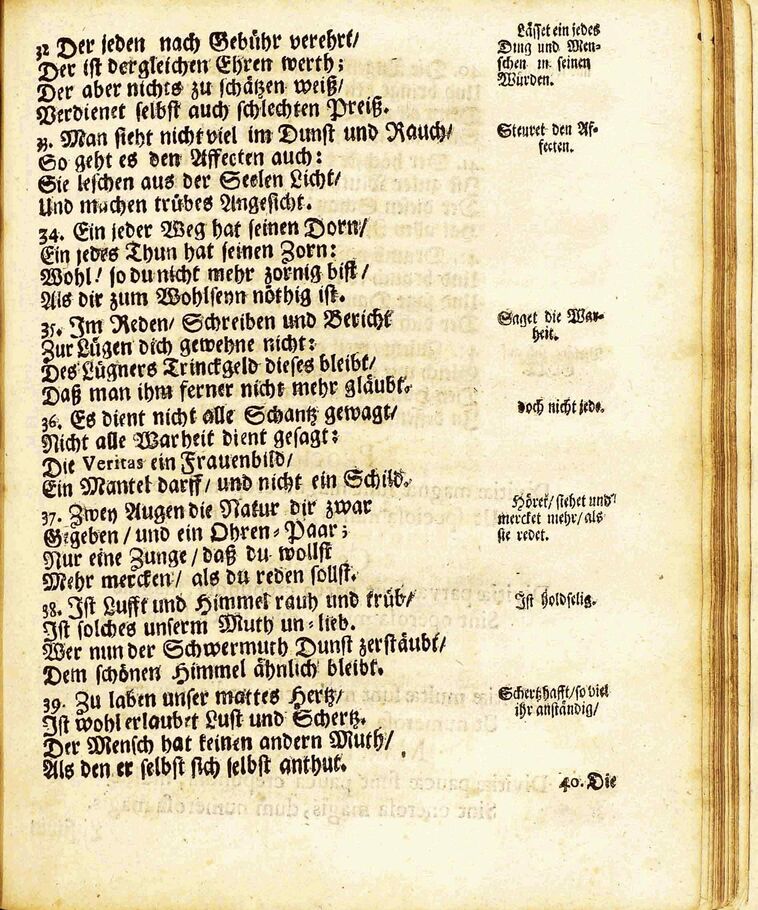 32 Der jeden nach Gebühr verehrt/
Der ist dergleichen Ehren werth;
Der aber nichts zu schätzen weiß/
Verdienet selbst auch schlechten Preiß.
33. Man sieht nicht viel im Dunst und Rauch/
So geht es den Affecten auch:
Sie leschen aus der Seelen Licht/
Und machen trübes Angesicht.
34. Ein jeder Weg hat seinen Dorn/
Ein jedes Thun hat seinen Zorn:
Wohl! so du nicht mehr zornig bist/
Als dir zum Wohlseyn nöthig ist.
35. Im Reden/ Schreiben und Bericht
Zur Lügen dich gewehne nicht:
Des Lügners Trinckgeld dieses bleibt/
Daß man ihm ferner nicht mehr gläubt.
36. Es dient nicht alle Schantz gewagt/
Nicht alle Warheit dient gesagt:
Die Veritas ein Frauenbild/
Ein Mantel darff/ und nicht ein Schild.
37. Zwey Augen die Natur dir zwar
Gegeben/ und ein Ohren-Paar;
Nur eine Zunge/ daß du wollst
Mehr mercken/ als du reden sollst.
38. Ist Lufft und Himmel rauh und trüb/
Ist solches unserm Muth un-lieb.
Wer nun der Schwermuth Dunst zerstäubt/
Dem schönen Himmel ähnlich bleibt.
39. Zu laben unser mattes Hertz/
Ist wohl erlaubet Lust und Schertz.
Der Mensch hat keinen andern Muth/
Als den er selbst sich selbst anthut.
Lässet ein jedes
Ding und Men-
schen in seinen
Würden.
Steuret den Af-
fecten.
Saget die War-
heit.
doch nicht jede.
Höret/ siehet und
mercket mehr/ als
sie redet.
Ist holdselig.
Schertzhafft/ so viel
ihr anständig/
40. Die